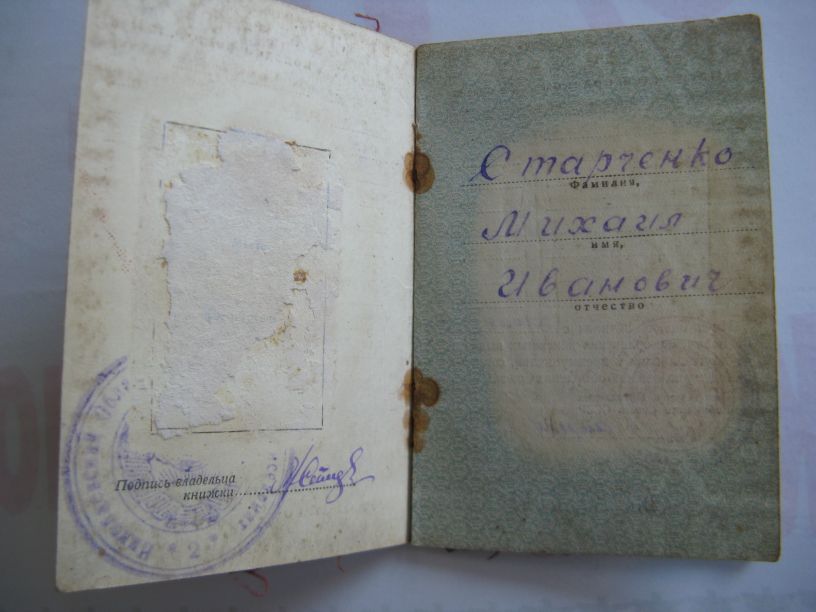 Подпись владельца
книжки
Старченко
Фамилия,
Михаил
имя,
Иванович
отчество